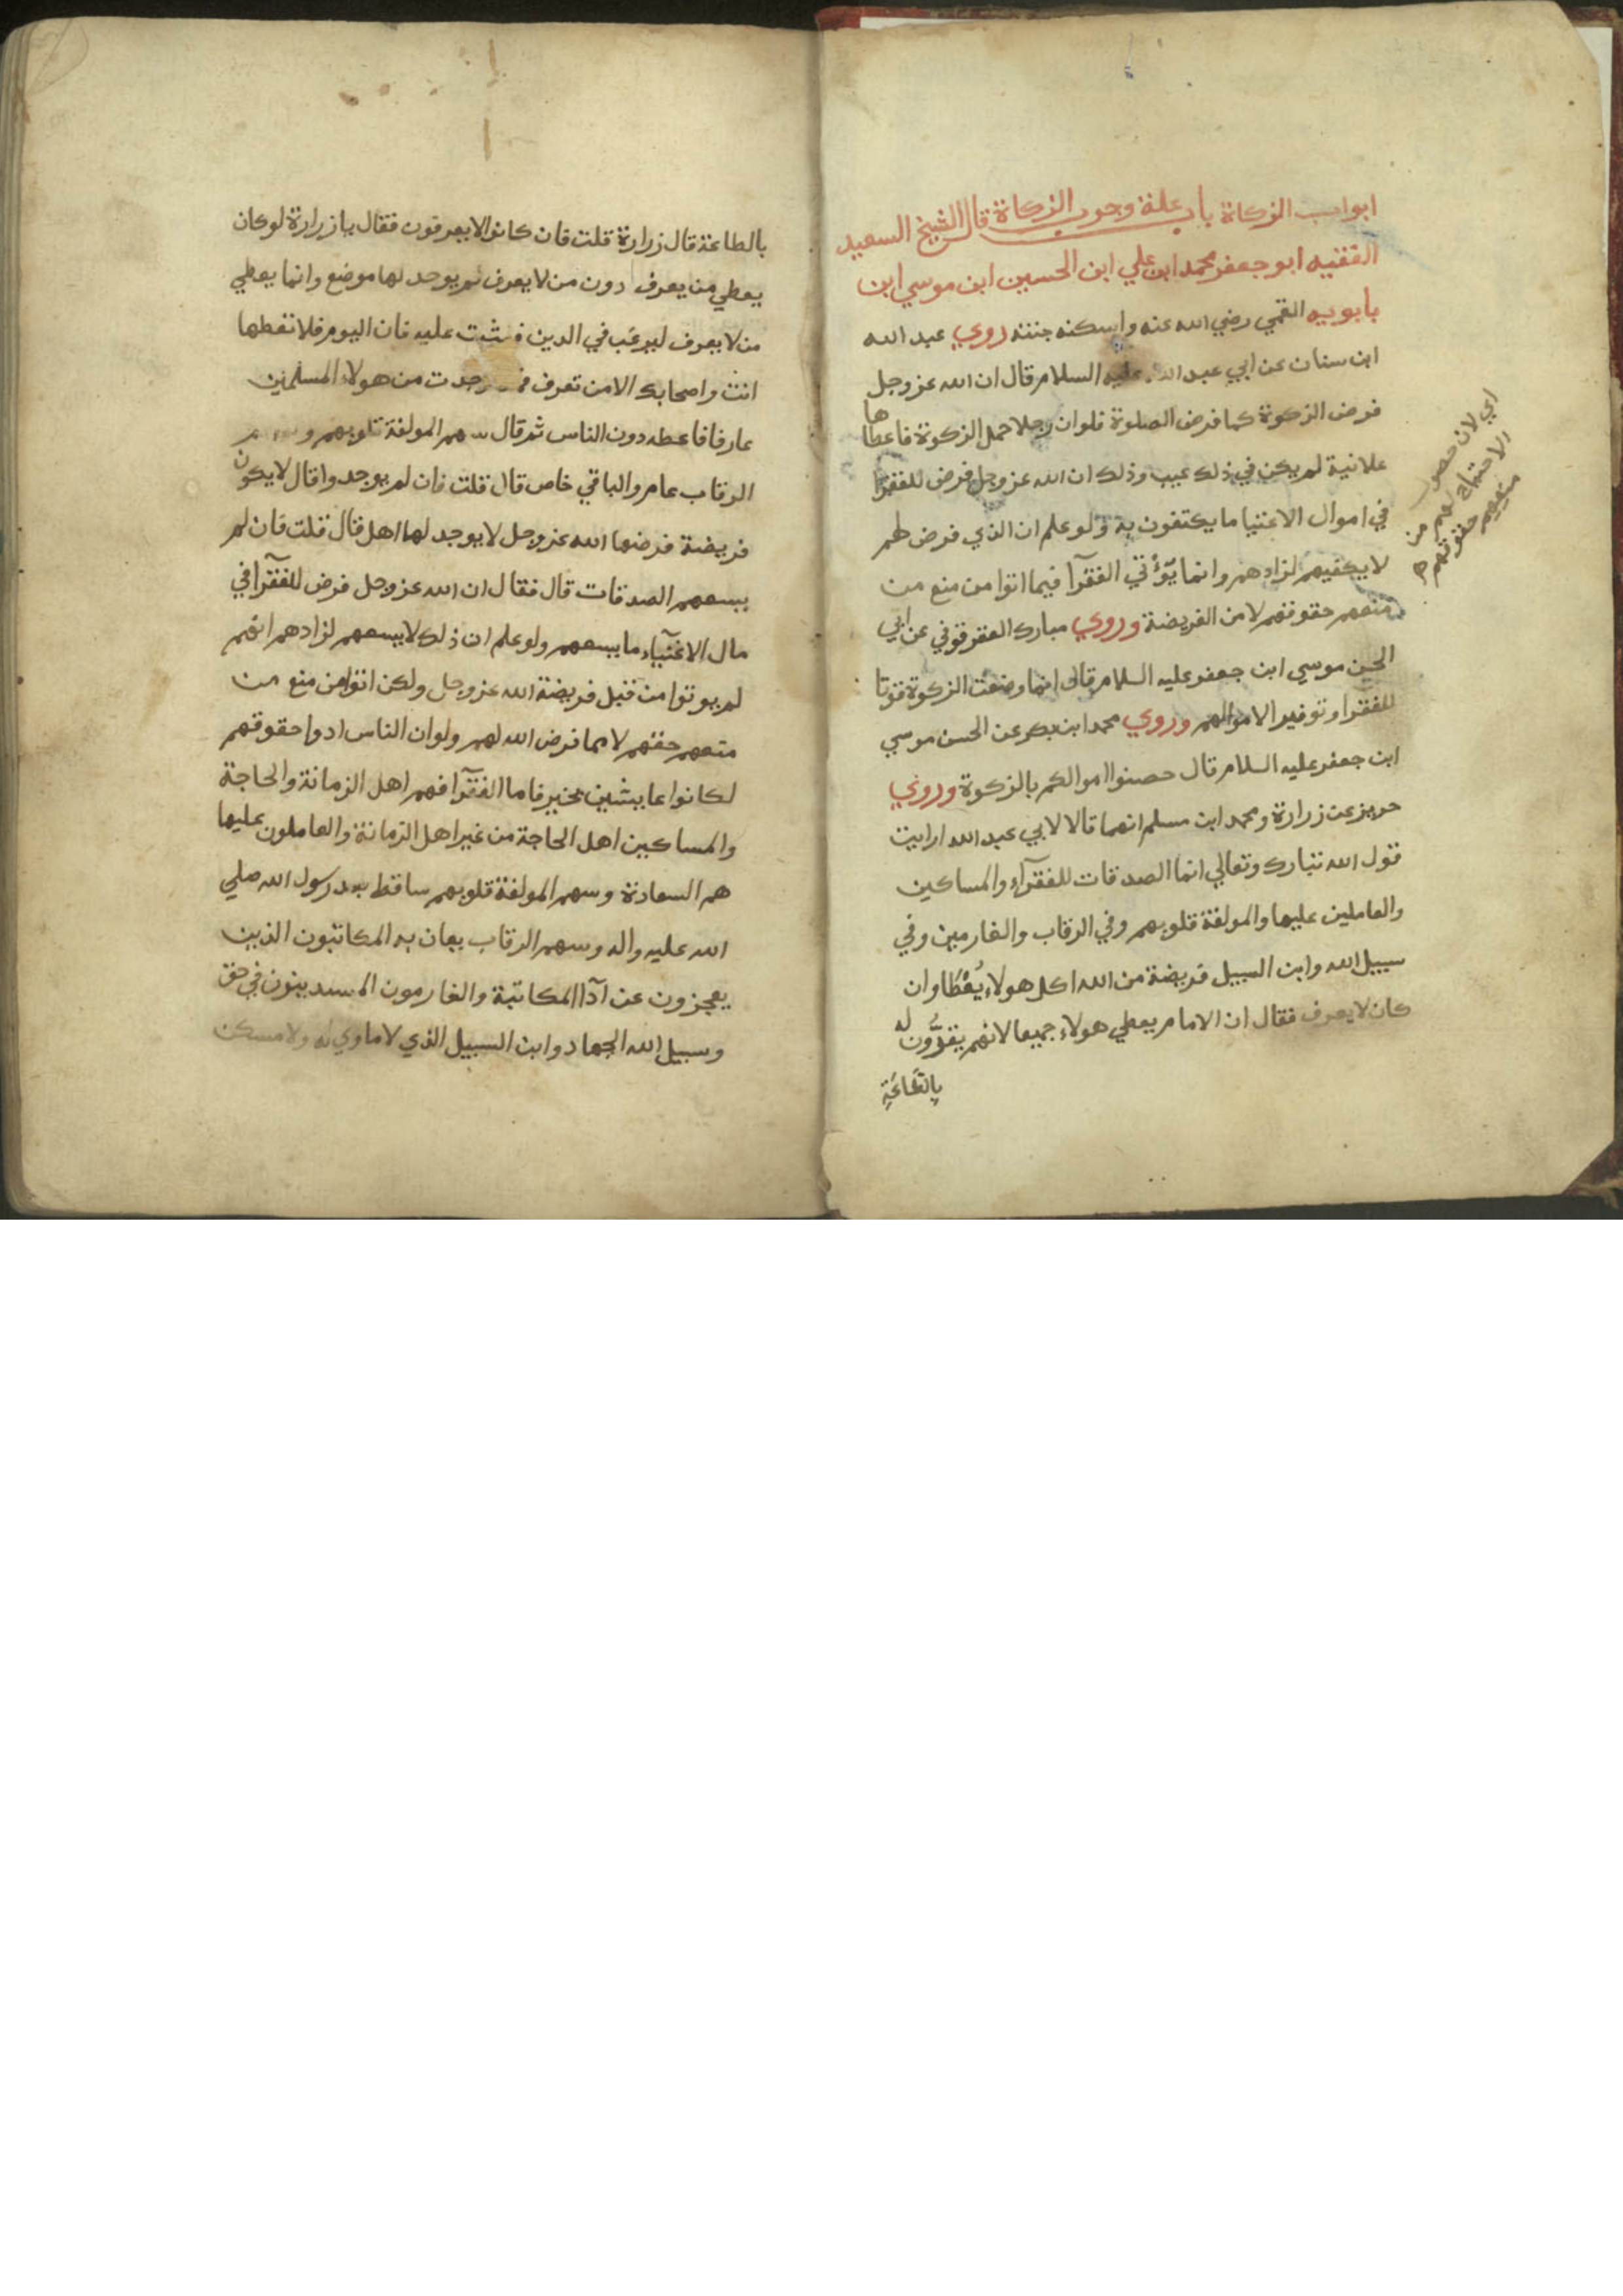 ابواب الزكاة باب علة وجوب الزكاة قال الشيخ السعيد
الفقيه ابو جعفر محمد ابن علي ابن الحسين ابن موسي ابن
بابويه القمي رضي الله عنه واسكنه جنته روي عبد الله
ابن سنان عن ابي عبد الله عليه السلام قال ان الله عز وجل
فرض الزكوة كما فرض الصلوة فلو ان رجلا حمل الزكوة فاعطاها
علانية لم يكن في ذلك عيب وذلك ان الله عز وجل فرض للفقرا
في اموال الاغنيا ما يكتفون به ولو علم ان الذي فرض لهم
لا يكفيهم لزادهم وانما يؤتي الفقرآ فيما اتوا من منع من
منعهم حقوقهم لا من الفريضة وروي مبارك العقرقوفي عن ابي
الحسن موسي ابن جعفر عليه السلام قال انما وضعت الزكوة قوتا
للفقرا وتوفيرا لاموالهم وروي محمد ابن بكر عن الحسن موسي
ابن جعفر عليه السلام قال حصنوا اموالكم بالزكوة وروي
حريز عن زرارة ومحمد ابن مسلم انهما قالا لابي عبد الله ارايت
قول الله تبارك وتعالي انما الصدقات للفقرآء والمساكين
والعاملين عليها والمولفة قلوبهم وفي الرقاب والغارمين وفي
سبيل الله وابن السبيل فريضة من الله اكل هولاء يُعْطَا وان
كان لا يعرف فقال ان الامام يعطي هولاء جميعا لانهم يقرُّون له
بِالطَّاعَةِ
اي لان
منعهم حقوقهم
بالطاعة قال زرارة قلت فان كانوا لا يعرفون فقال يا زرارة لو كان
يعطي من يعرف دون من لا يعرف لم يوجد لها موضع وانما يعطي
من لا يعرف ليرغب في الدين فيثبت عليه فان اليوم فلا تعطها
انت واصحابك الا من تعرف وجدت من هولاء المسلمين
عارفا فاعطه دون الناس ثم قال سهم المولفة قلوبهم
الرقاب عام والباقي خاص قال قلت فان لم يوجدوا قال لا يكون
فريضة فرضها الله عز وجل لا يوجد لها اهل قال قلت فان لم
يسعهم الصدقات قال فقال ان الله عز وجل فرض للفقرآ في
مال الاغنيآء ما يسعهم ولو علم ان ذلك لا يسعهم لزادهم انهم
لم يوتوا من قبل فريضة الله عز وجل ولكن اتوا من منع من
منعهم حقهم لا مما فرض الله لهم ولو ان الناس ادوا حقوقهم
لكانوا عايشين بخير فاما الفقرآ فهم اهل الزمانة والحاجة
والمساكين اهل الحاجة من غير اهل الزمانة والعاملون عليها
هم السعادة وسهم المولفة قلوبهم ساقط بعد رسول الله صلي
الله عليه واله وسهم الرقاب يعان به المكاتبون الذين
يعجزون عن آدا المكاتبة والغارمون المستدينون في حق
وسبيل الله الجهاد وابن السبيل الذي لا ماوي له ولا مسكن